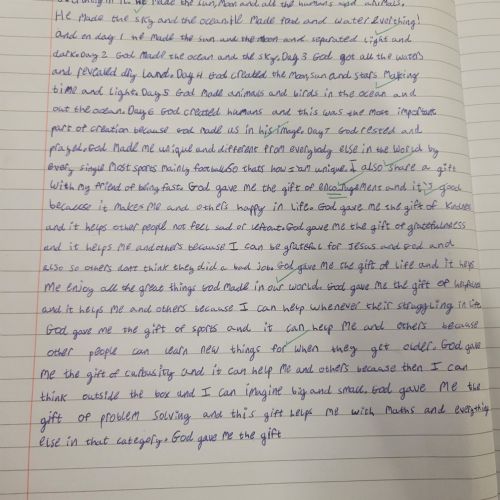 everything in it. He made the sun, Moon and all the humans and animals.
He made the sky and the ocean He Made food and water Everything!
And on day 1 He Made the sun and the Moon and separated light and
dark. Day 2 God Made the ocean and the sky. Day 3 God got all the waters
and revealed dry land. Day 4 God created the Moon, sun and stars Making
time and light. Day 5 God Made animals and birds in the ocean and
out the ocean. Day 6 God created humans and this was the most important
part of creation because God made us in his image. Day 7 God rested and
prayed. God Made me unique and different from everybody else in the World by
every single Most sports mainly football So thats how I am unique. I also share a gift
with my friend of being fast. God gave me the gift of encoJugement and it's good
because it makes Me and others happy in life. God gave me the gift of kindness
and it helps other people not feel sad or leftout. God gave Me the gift of gratefulness
and it helps Me and others because I can be grateful for Jesus and God and
also so others dont think they did a bad job. God gave me the gift of life and it helps
Me enjoy all the great things God Made in our world. God gave Me the gift of
and it helps Me and others because I can help whenever their struggling in life.
God gave me the gift of sports and it can help Me and others because
other people can learn new things for when they get older. God gave
Me the gift of curbusity and it can help Me and others because then I can
think outside the box and I can imagine big and small. God gave Me the
gift of problem solving and this gift helps Me with Maths and everything
else in that category. God gave Me the gift